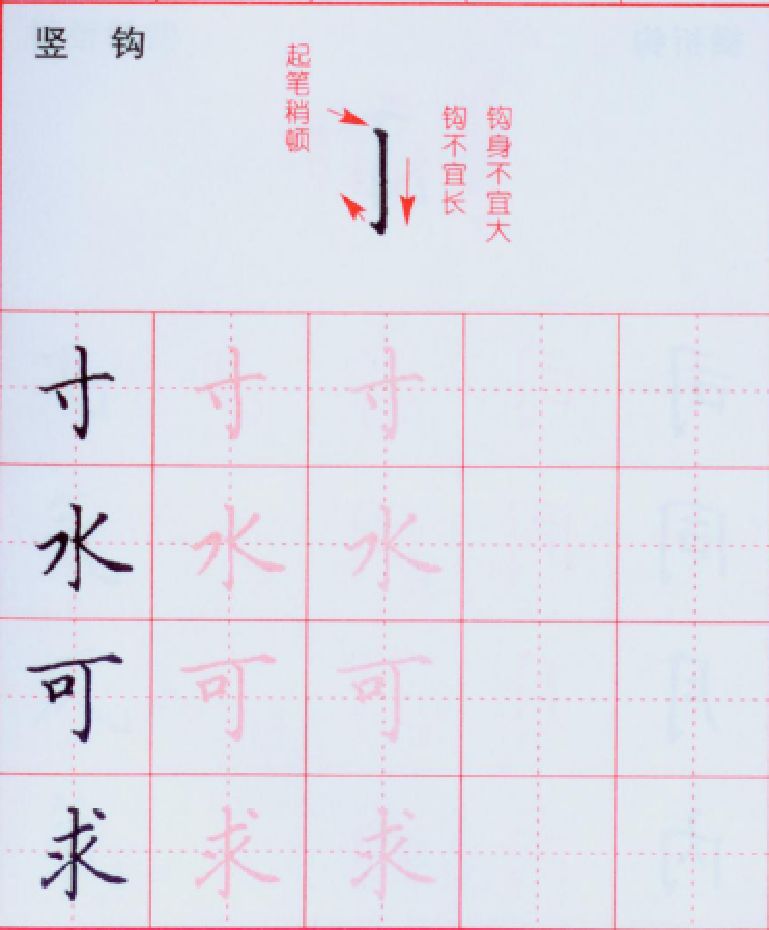 竖 钩
起笔稍顿
钩不宜长
钩身不宜大
寸 寸 寸
水 水 水
可 可 可
求 求 求